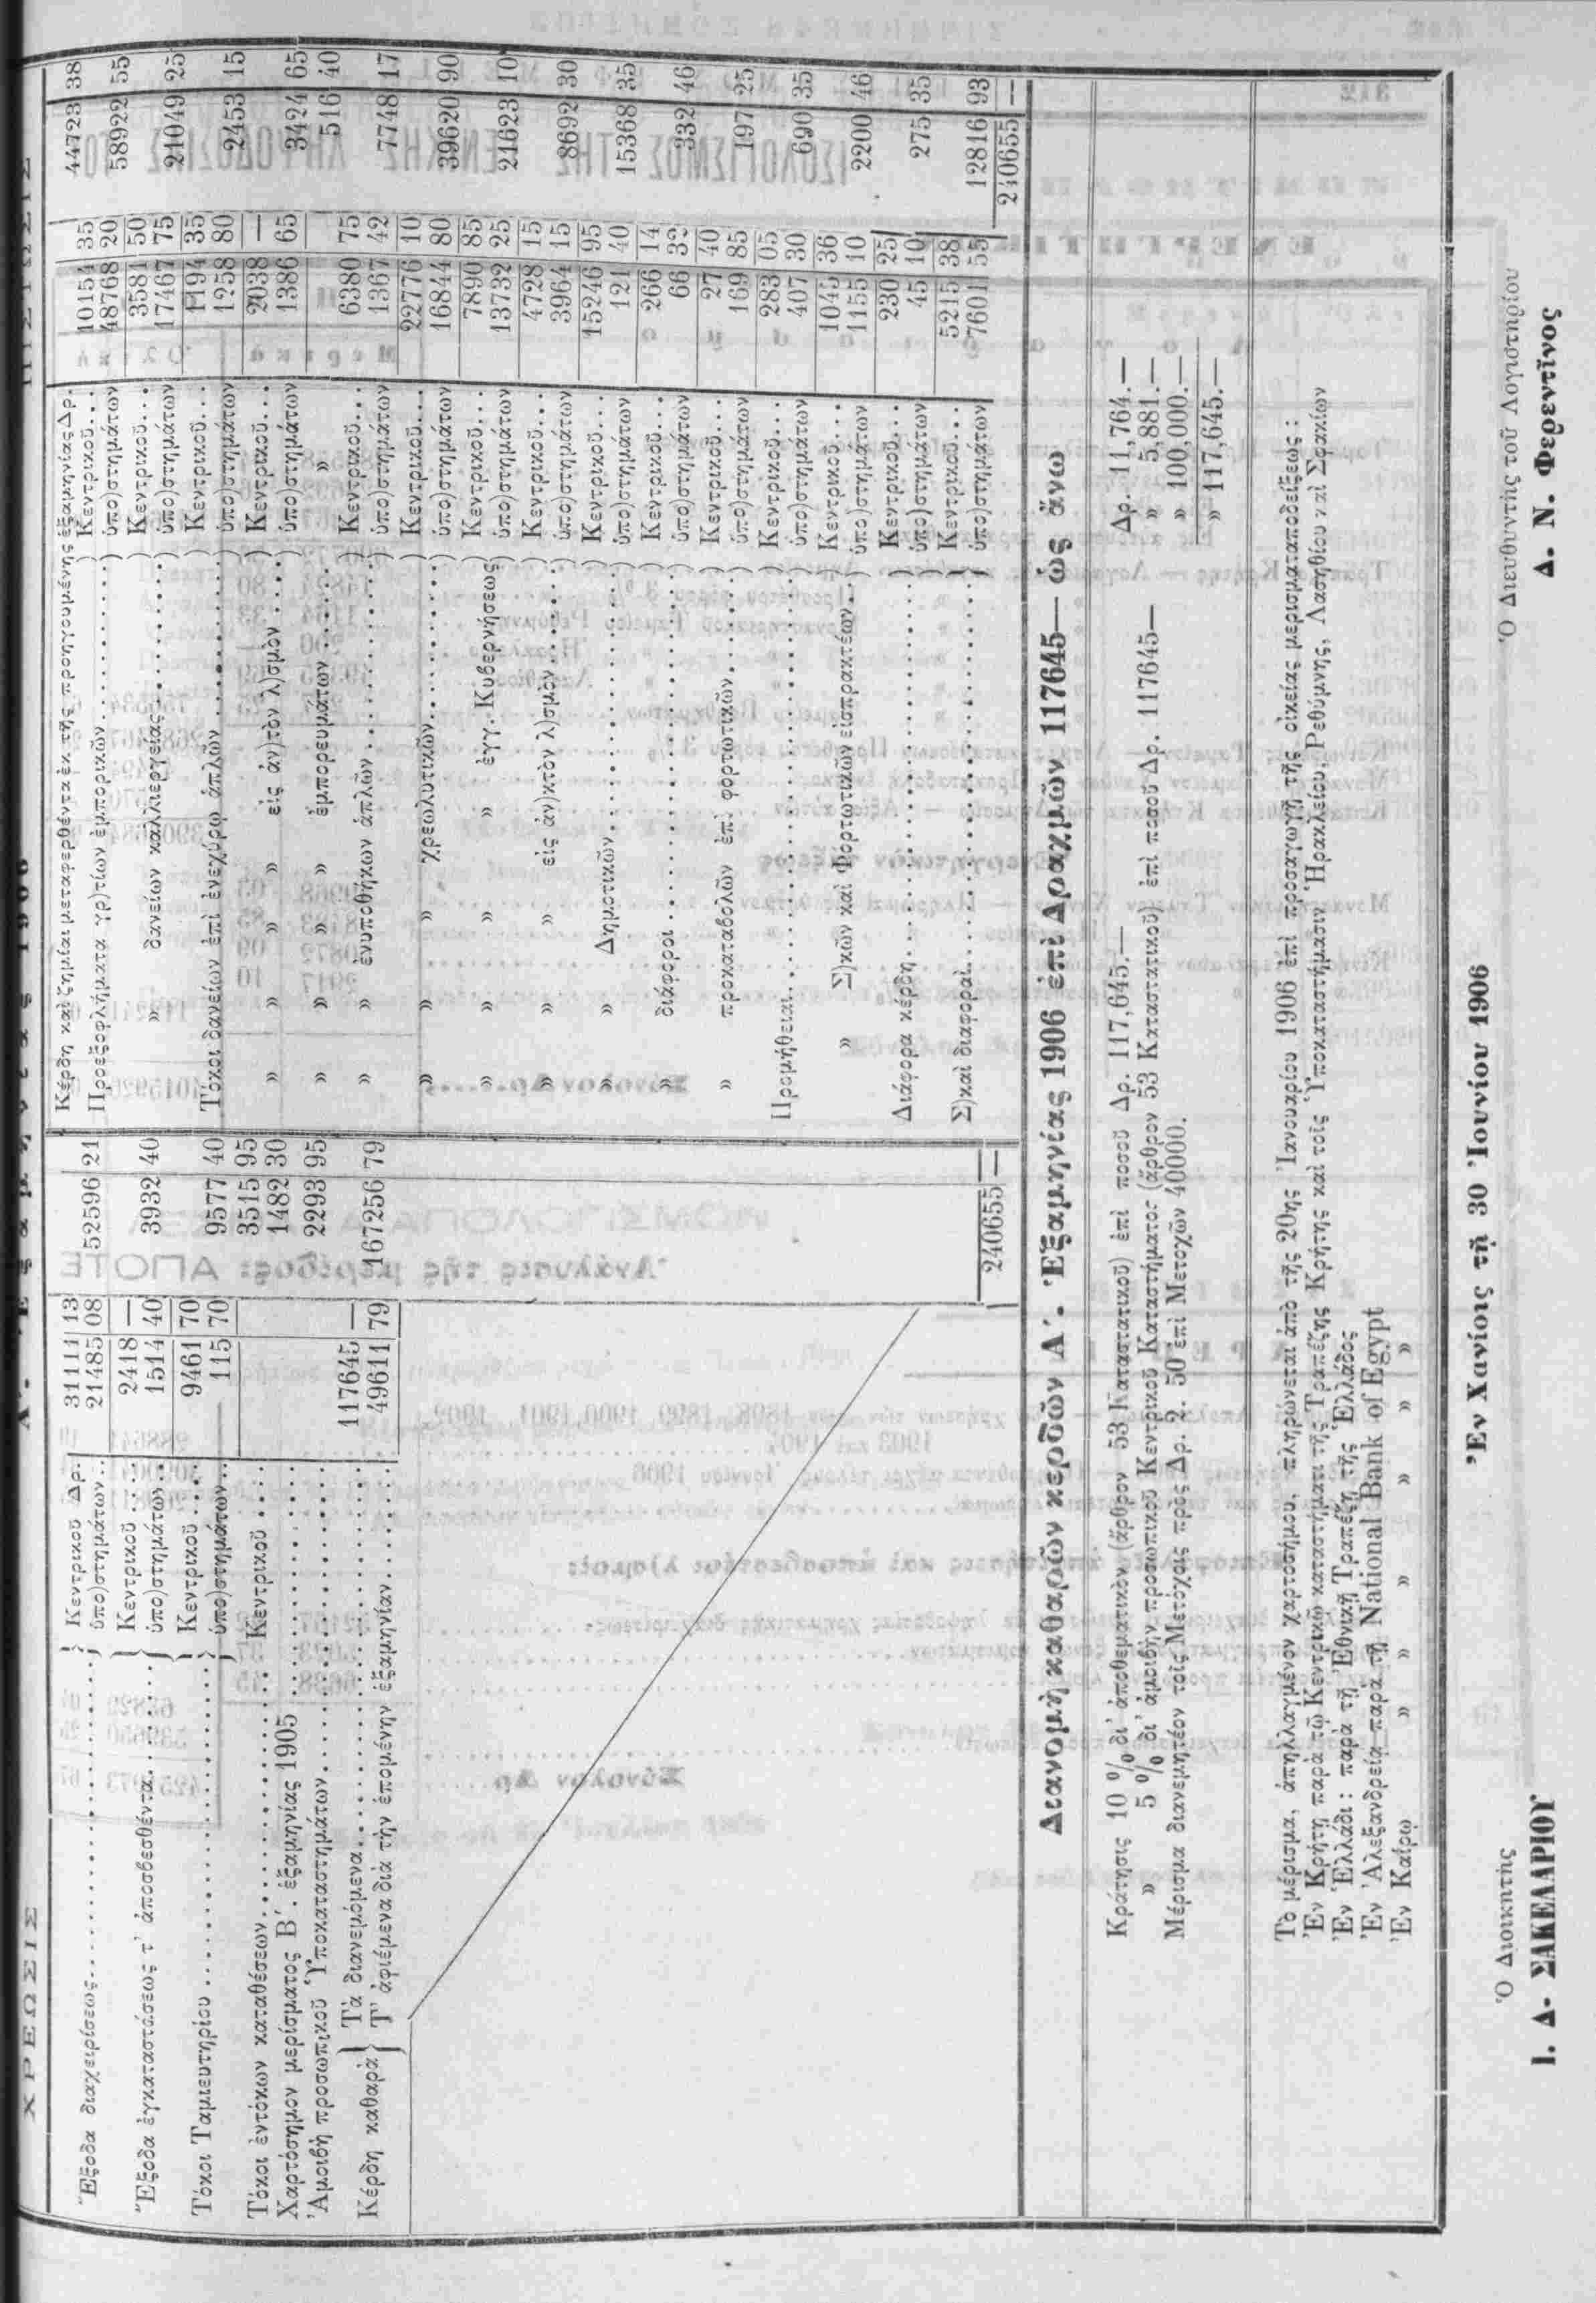 ΧΡΕΩΣΙΣ
Α′. Ἑξαμηνίας 1906
ΠΙΣΤΩΣΙΣ
Ἔξοδα διαχειρίσεως } Κεντρικοῦ Δρ. 31111 13
ὑπο)στημάτων 21485 08 52596 21
Ἔξοδα ἐγκαταστάσεως τ' ἀποσβεσθέντα } Κεντρικοῦ 2418 —
ὑπο)στημάτων 1514 40 3932 40
Τόκοι Ταμιευτηρίου } Κεντρικοῦ 9461 70
ὑπο)στημάτων 115 70 9577 40
Τόκοι ἐντόκων καταθέσεων Κεντρικοῦ 3515 95
Χαρτόσημον μερίσματος Β′. ἑξαμηνίας 1905 1482 30
Ἀμοιβὴ προσωπικοῦ Ὑποκαταστημάτων 2293 95
Κέρδη καθαρὰ { Τὰ διανεμόμενα 117645 —
Τ' ἀφιέμενα διὰ τὴν ἑπομένην ἑξαμηνίαν 49611 79 167256 79
240655 —
Κέρδη καὶ ζημίαι μεταφερθέντα ἐκ τῆς προηγουμένης ἑξαμηνίας Δρ. 44723 38
Προεξοφλήματα γρ)τίων ἐμπορικῶν ) Κεντρικοῦ 10154 35
ὑπο)στημάτων 48768 20 58922 55
» δανείων καλλιεργείας ) Κεντρικοῦ 3581 50
ὑπο)στημάτων 17467 75 21049 25
Τόκοι δανείων ἐπὶ ἐνεχύρῳ ἁπλῶν ) Κεντρικοῦ 1194 35
ὑπο)στημάτων 1258 80 2453 15
» » » » εἰς ἀν)τὸν λ)σμὸν ) Κεντρικοῦ 2038 —
ὑπο)στημάτων 1386 65 3424 65
» » » » ἐμπορευμάτων » 516 40
» » ἐνυποθήκων ἁπλῶν ) Κεντρικοῦ 6380 75
ὑπο)στημάτων 1367 42 7748 17
» » » χρεωλυτικῶν ) Κεντρικοῦ 22776 10
ὑπο)στημάτων 16844 80 39620 90
» » » » ἐγγ. Κυβερνήσεως ) Κεντρικοῦ 7890 85
ὑπο)στημάτων 13732 25 21623 10
» » » εἰς ἀν)κτὸν λ)σμὸν ) Κεντρικοῦ 4728 15
ὑπο)στημάτων 3964 15 8692 30
» » Δημοτικῶν ) Κεντρικοῦ 15246 95
ὑπο)στημάτων 121 40 15368 35
» διάφοροι ) Κεντρικοῦ 266 14
ὑπο)στημάτων 66 32 332 46
» προκαταβολῶν ἐπὶ φορτωτικῶν ) Κεντρικοῦ 27 40
ὑπο)στημάτων 169 85 197 25
Προμήθειαι ) Κεντρικοῦ 283 05
ὑπο)στημάτων 407 30 690 35
» Σ)κῶν καὶ Φορτωτικῶν εἰσπρακτέων ) Κεντρικοῦ 1045 36
ὑπο)στημάτων 1155 10 2200 46
Διάφορα κέρδη ) Κεντρικοῦ 230 25
ὑπο)στημάτων 45 10 275 35
Σ)καὶ διαφοραὶ ) Κεντρικοῦ 5215 38
ὑπο)στημάτων 7601 55 12816 93
240655 —
Διανομὴ καθαρῶν κερδῶν Α′. Ἑξαμηνίας 1906 ἐπὶ Δραχμῶν 117645— ὡς ἄνω
Κράτησις 10 % δι' ἀποθεματικὸν (ἄρθρον 53 Καταστατικοῦ) ἐπὶ ποσοῦ Δρ. 117,645.— Δρ. 11,764.—
» 5 % δι' ἀμοιβὴν προσωπικοῦ Κεντρικοῦ Καταστήματος (ἄρθρον 53 Καταστατικοῦ) ἐπὶ ποσοῦ Δρ. 117645— » 5,881.—
Μέρισμα διανεμητέον τοῖς Μετόχοις πρὸς Δρ. 2. 50 ἐπὶ Μετοχῶν 40000. » 100,000.—
» 117,645.—
Τὸ μέρισμα, ἀπηλλαγμένον χαρτοσήμου, πληρώνεται ἀπὸ τῆς 20ης Ἰανουαρίου 1906 ἐπὶ προσαγωγῇ τῆς οἰκείας μερισματαποδείξεως :
Ἐν Κρήτῃ παρὰ τῷ Κεντρικῷ καταστήματι τῆς Τραπέζης Κρήτης καὶ τοῖς Ὑποκαταστήμασιν Ἡρακλείου, Ρεθύμνης, Λασηθίου καὶ Σφακίων
Ἐν Ἑλλάδι : παρὰ τῇ Ἐθνικῇ Τραπέζῃ τῆς Ἑλλάδος
Ἐν Ἀλεξανδρείᾳ παρὰ τῇ National Bank of Egypt
Ἐν Καΐρῳ » » » » » »
Ἐν Χανίοις τῇ 30 Ἰουνίου 1906
Ὁ Διοικητὴς
Ι. Δ. ΣΑΚΕΛΑΡΙΟΥ
Ὁ Διευθυντὴς τοῦ Λογιστηρίου
Δ. Ν. Φερεντῖνος